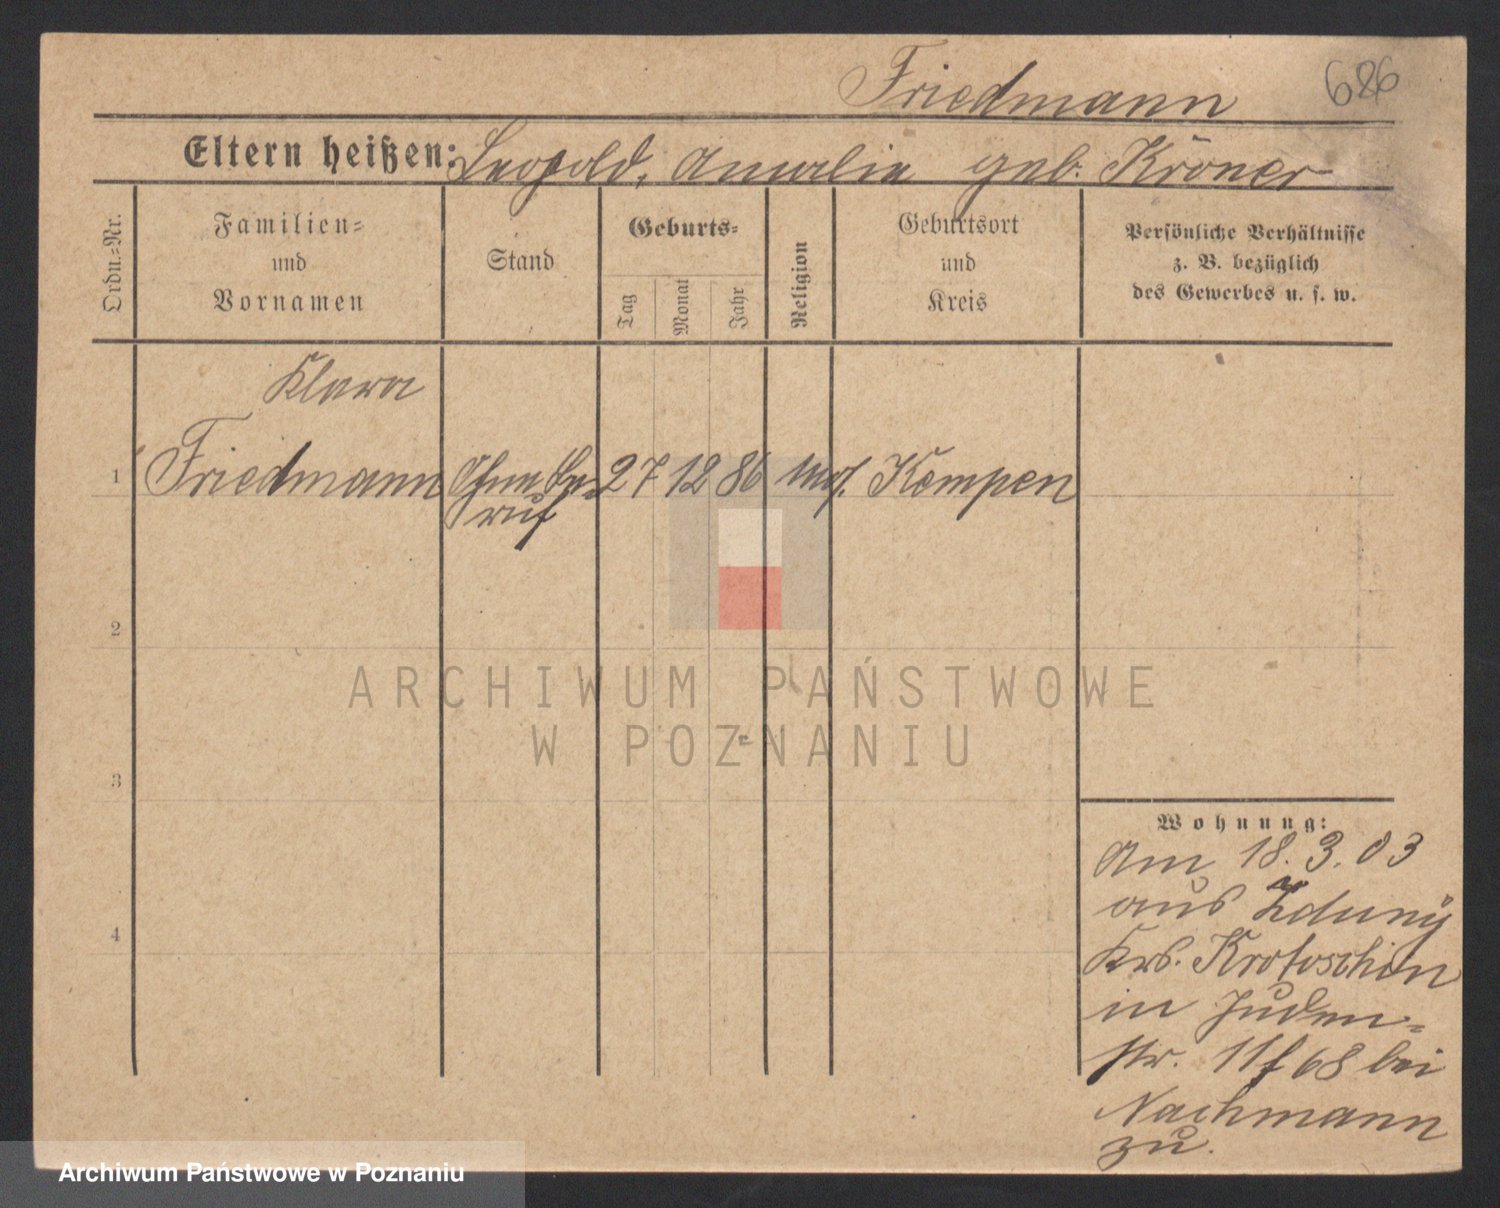 686
Friedmann
Eltern heißen: Leopold, Amalie geb. Kroner
Ordn.=Nr.
Familien=
und
Vornamen
Stand
Geburts=
Tag
Monat
Jahr
Religion
Geburtsort
und
Kreis
Persönliche Verhältnisse
z. B. bezüglich
des Gewerbes u. s. w.
Klara
1 Friedmann Ohne Be= 27 12 86 mos. Kempen
ruf
2
3
4
ARCHIWUM PAŃSTWOWE
W POZNANIU
Wohnung:
Am 18. 3. 03
aus Zduny
Krs. Krotoschin
in Juden=
str. 11/68 bei
Nachmann
zu.
Archiwum Państwowe w Poznaniu